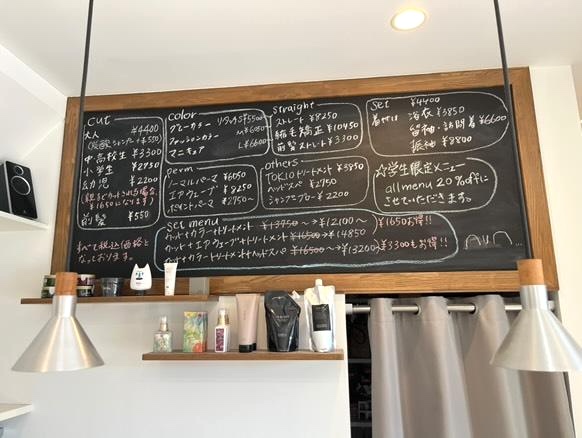 cut
大人 ¥4400
(炭酸シャンプー+¥550)
中・高校生 ¥3300
小学生 ¥2750
幼児 ¥2200
¥1650になります)
前髪 ¥550
すべて税込価格と
なっております。
color
グレーカラー リタッチS¥5500
ファッションカラー M¥6050
マニキュア L¥6600
perm
ノーマルパーマ ¥6050
エアウェーブ ¥8250
ポイントパーマ ¥2750〜
straight
ストレート ¥8250
縮毛矯正 ¥10450
前髪ストレート ¥3300
others
TOKIOトリートメント ¥3850
ヘッドスパ ¥2750
シャンプーブロー ¥2200
set ¥4400
着付け 浴衣 ¥3850
留袖・訪問着 ¥6600
振袖 ¥8800
☆学生限定メニュー
all menu 20%offに
させていただきます。
set menu
カット+カラー+トリートメント ¥13750→¥12100〜 ¥1650お得!!
カット+エアウェーブ+トリートメント ¥16500→¥14850
カット+カラー+トリートメント+ヘッドスパ ¥16500〜→¥13200 ¥3300もお得!!